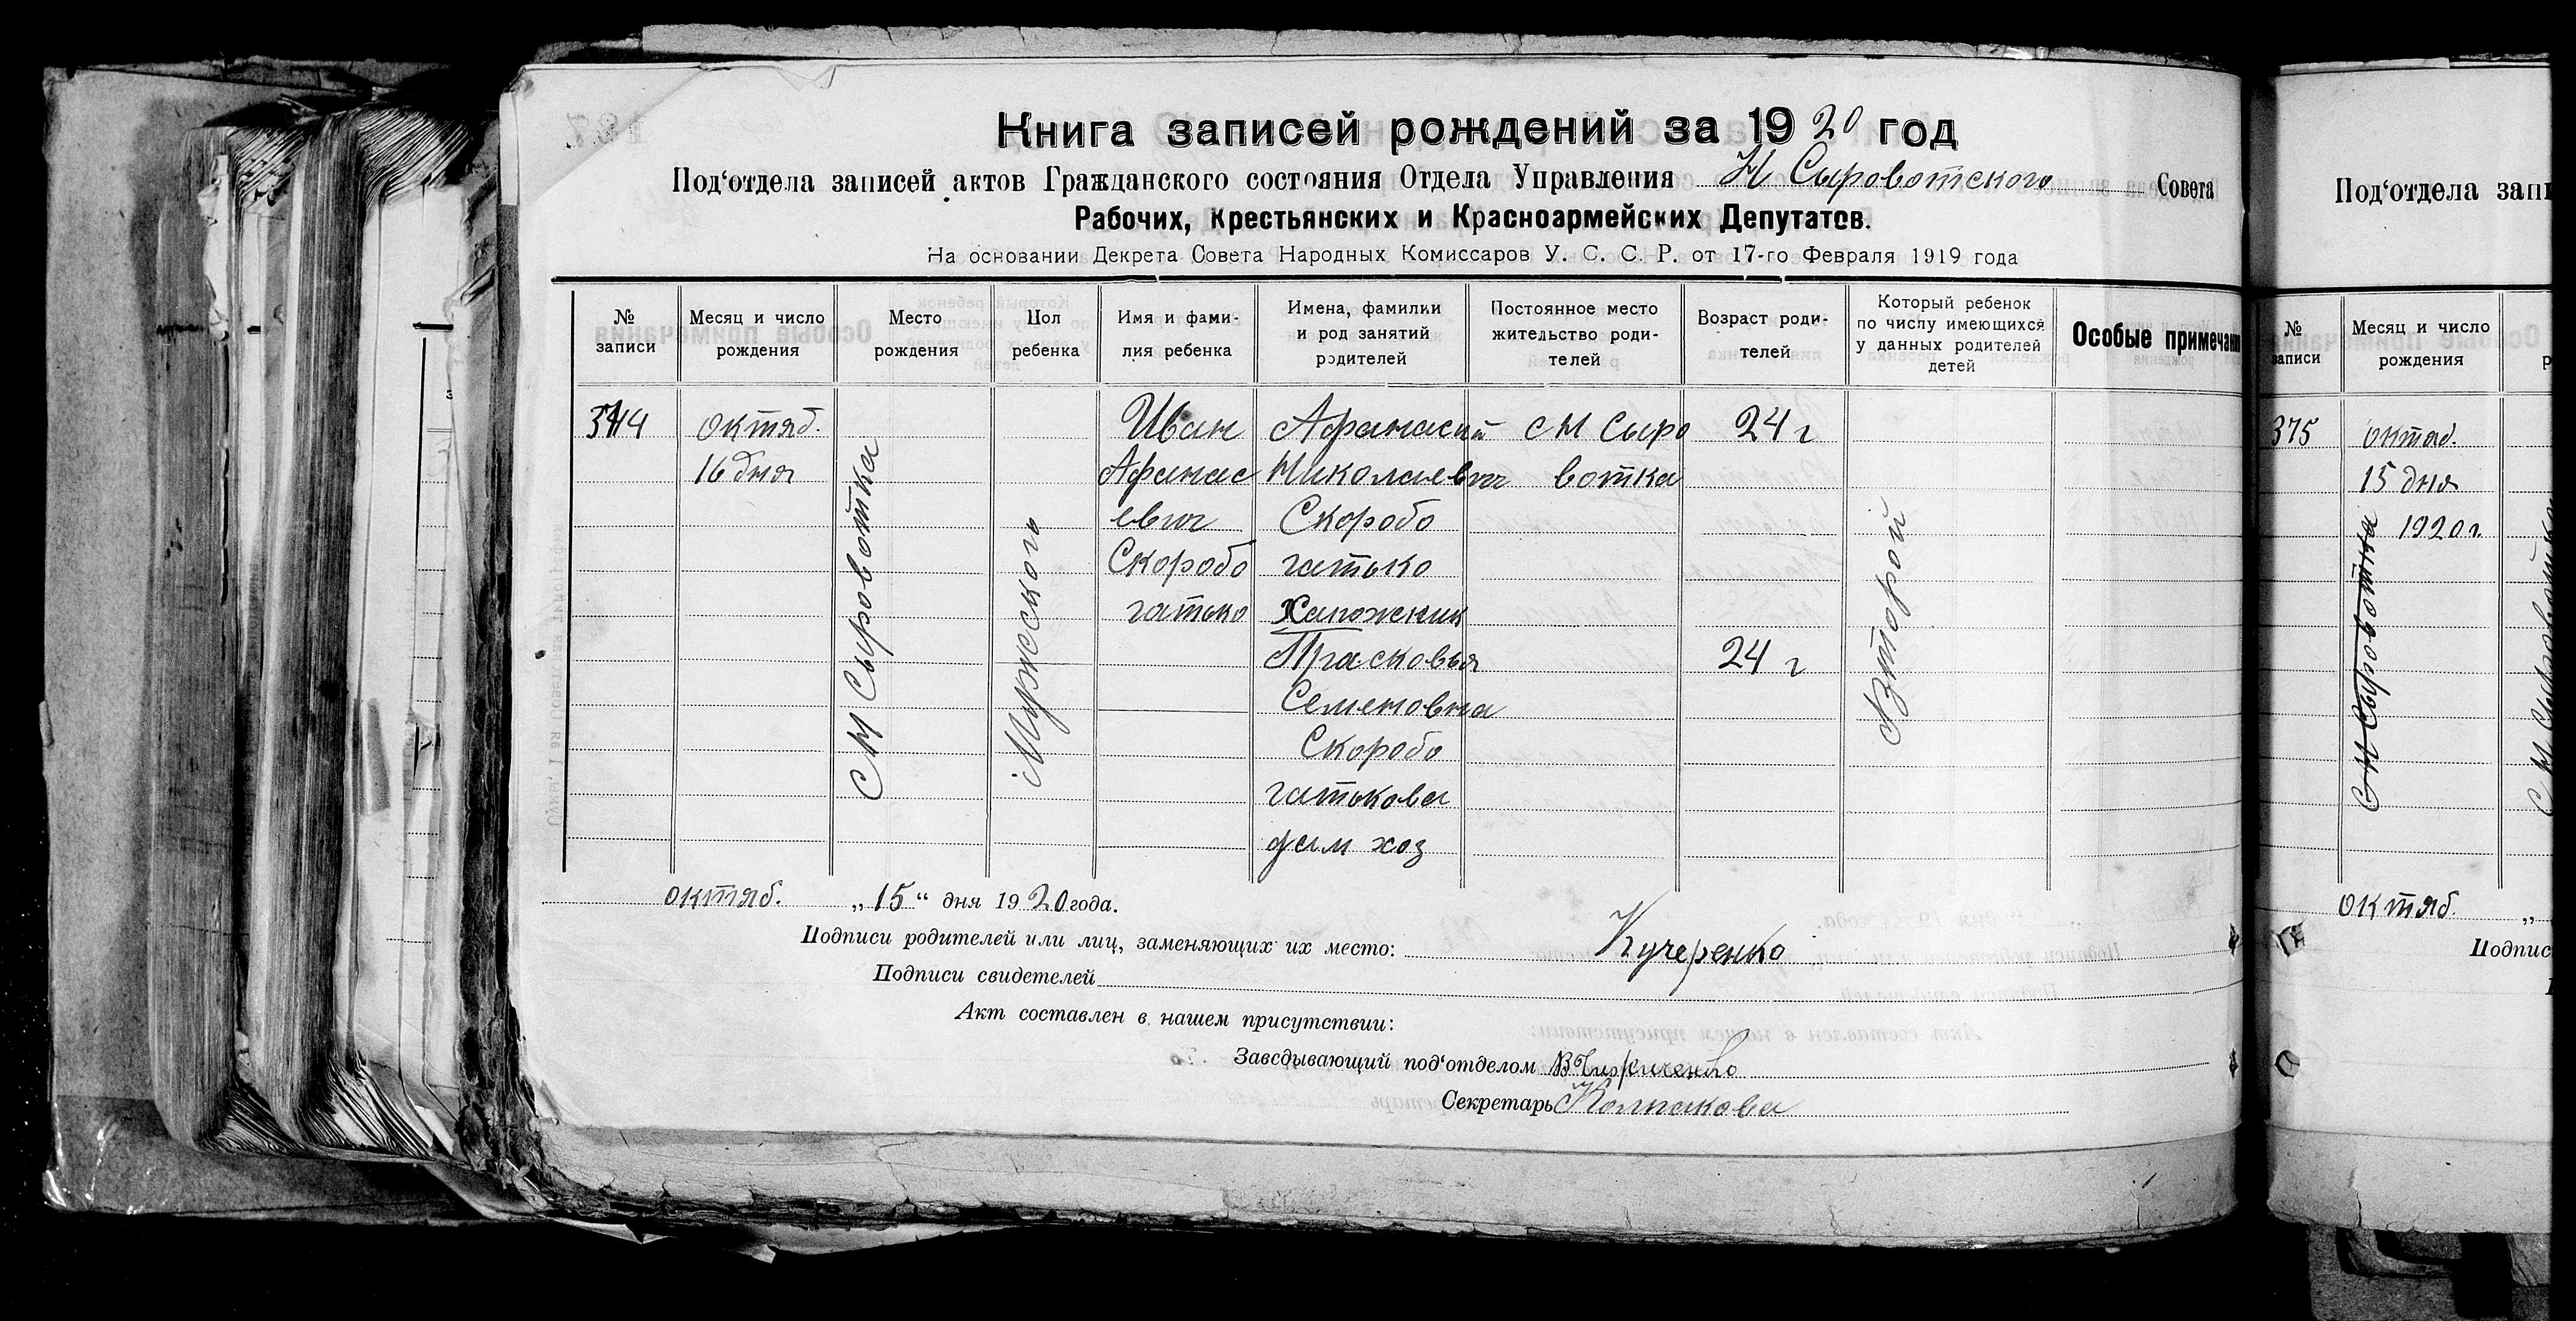 Книга записей рождений за 1920 год
Под'отдела записей актов Гражданского состояния Отдела Управления Н Сыровотского Совета
Рабочих, Крестьянских и Красноармейских Депутатов.
На основании Декрета Совета Народных Комиссаров У. С. С. Р. от 17-го Февраля 1919 года
№ записи
Месяц и число рождения
Место рождения
Пол ребенка
Имя и фами-
лия ребенка
Имена, фамилии
и род занятий
родителей
Постоянное место
жительство роди-
телей
Возраст роди-
телей
Который ребенок
по числу имеющихся
у данных родителей
детей
Особые примечани
октяб.
16 дня
С Н Сыровотка
Мужеского
Иван
Афанас
евич
Скоробо
гатько
Афанасий
Николаевич
Скоробо
гатько
Прасковья
Семеновна
Скоробо
гатькова
дом хоз
с Н Сыро
вотка
24 г
24 г
Второй
октяб. „15“ дня 1920 года.
Подписи родителей или лиц, заменяющих их место: Кучеренко
Подписи свидетелей
Акт составлен в нашем присутствии:
Заведывающий под'отделом
Секретарь Колпакова
Под'отдела запи
№ записи
Месяц и число рождения
375
октяб.
15 дня
1920 г.
С Н Сыровотка
октяб. „
Подпис